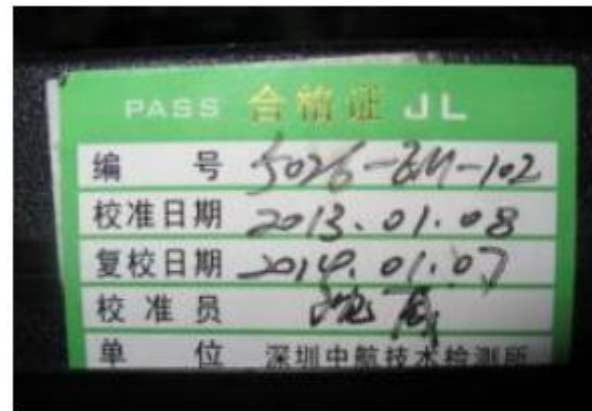 PASS 合格证 JL
编 号 5026-BM-102
校准日期 2013.01.08
复校日期 2014.01.07
校 准 员
单 位 深圳中航技术检测所